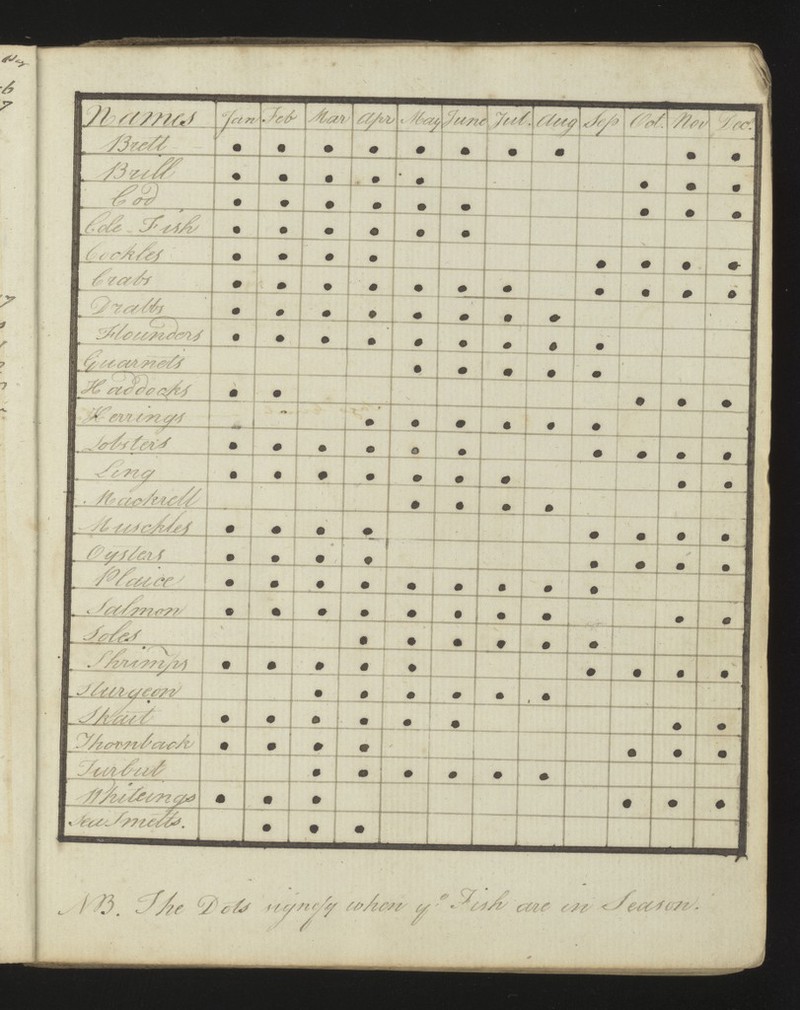 Names Jan Feb Mar Apr May June Jul. Aug Sep Oct. Nov Dec.
Brett • • • • • • • • • •
Brill • • • • • • • •
Cod • • • • • • • • •
Cole-Fish • • • • • •
Cockles • • • • • • • •
Crabs • • • • • • • • • • •
Drabbs • • • • • • • •
Flounders • • • • • • • • •
Guarnets • • • • •
Haddocks • • • • •
Herrings • • • • • •
Lobsters • • • • • • • • • •
Ling • • • • • • • • •
Mackrell • • • •
Muschles • • • • • • • •
Oysters • • • • • • • •
Plaice • • • • • • • • •
Salmon • • • • • • • • • •
Soles • • • • • •
Shrimps • • • • • • • • •
Sturgeon • • • • • •
Skait • • • • • • • •
Thornback • • • • • • •
Turbut • • • • • •
Whiteings • • • • • •
Sea Smelts. • • •
NB. The Dots signify when yᵉ Fish are in Season.